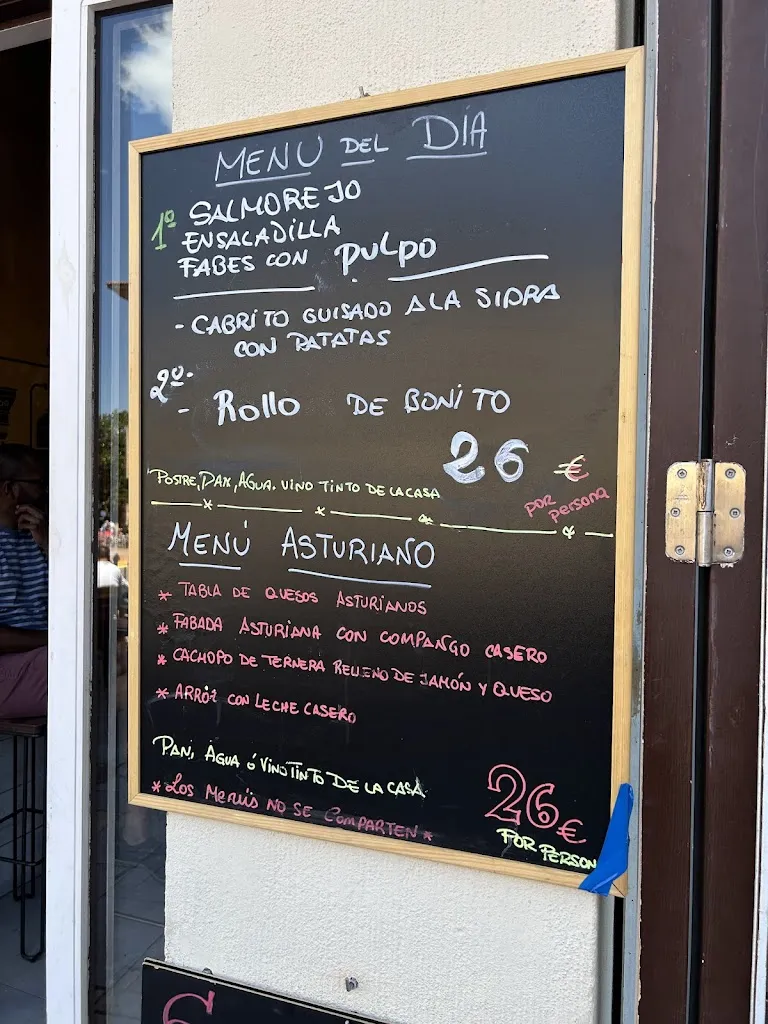 MENU DEL DÍA
1º SALMOREJO
ENSALADILLA
FABES CON PULPO
- CABRITO GUISADO A LA SIDRA
CON PATATAS
2º.
- Rollo DE BONITO
26 €
POSTRE, PAN, AGUA. VINO TINTO DE LA CASA
por persona
MENÚ ASTURIANO
* TABLA DE QUESOS ASTURIANOS
* FABADA ASTURIANA CON COMPANGO CASERO
* CACHOPO DE TERNERA RELLENO DE JAMÓN Y QUESO
* ARRÓZ CON LECHE CASERO
PAN, AGUA Ó VINO TINTO DE LA CASA
26 €
POR PERSON
* LOS MENÚS NO SE COMPARTEN *